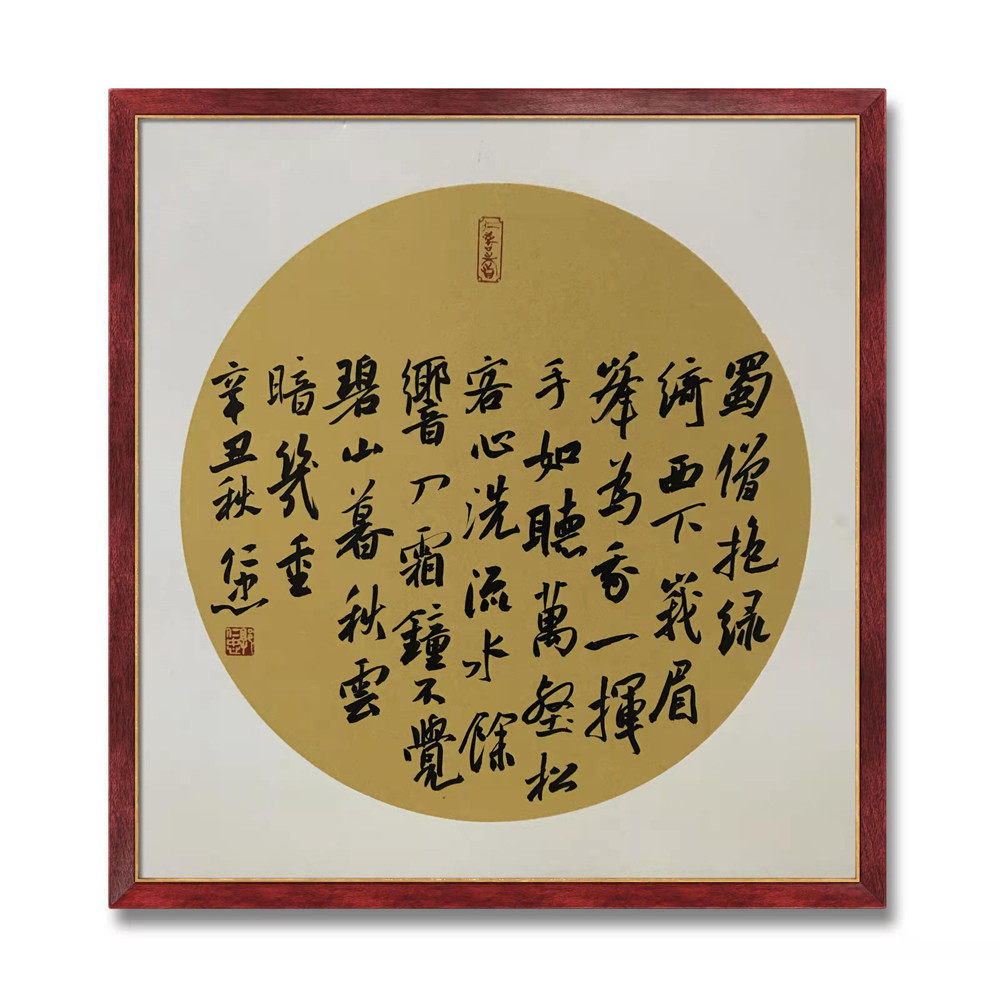 蜀僧抱绿
綺西下峩眉
峯為我一揮
手如聽萬壑松
客心洗流水餘
響入霜鐘不覺
碧山暮秋雲
暗幾重
辛丑秋 仁忠